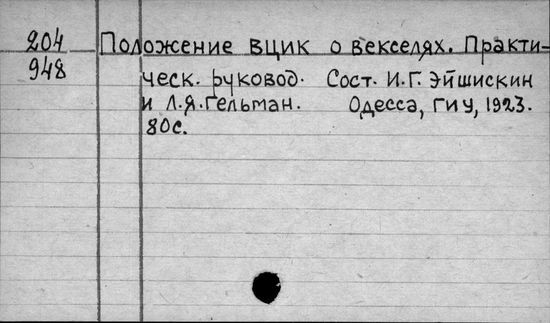 204 Положение ВЦИК о векселях. Практи-
948 ческ. руковод. Сост. И.Г. Эйшискин
и Л.Я. Гельман. Одесса, ГИУ, 1923.
80с.